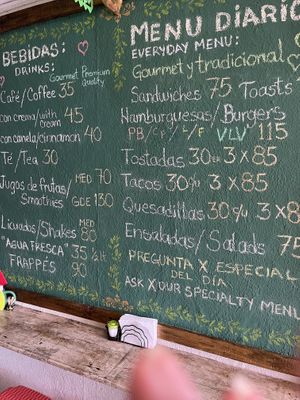 BEBIDAS:
DRINKS:
Gourmet Premium
Quality
Café/Coffee 35
con crema/with cream 45
con canela/cinnamon 40
Té/Tea 30
Jugos de frutas/ MED 70
Smoothies GDE 130
Licuados/Shakes MED 80
"AGUA FRESCA" 35 ½ lt
FRAPPÉS 90
MENU DIARIO
EVERYDAY MENU:
Gourmet y tradicional
Sandwiches 75 Toasts
Hamburguesas/Burgers
VLV 115
Tostadas 30 c/u 3 x 85
Tacos 30 3 x 85
Quesadillas 30 c/u 3 x 8
Ensaladas/Salads 75
PREGUNTA X ESPECIAL
DEL DÍA
ASK X OUR SPECIALTY MENU